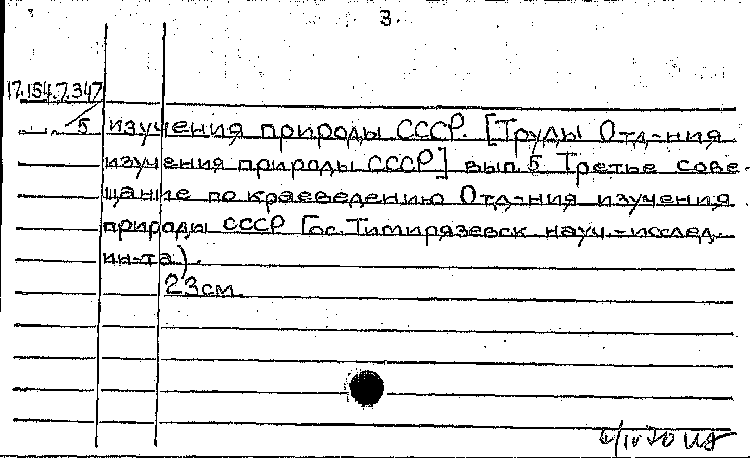 3.
17.154.7.347
5
изучения природы СССР. [Труды Отд-ния
изучения природы СССР] вып 5 Третье сове-
щание по краеведению Отд-ния изучения
природы СССР Гос. Тимирязевск науч.-исслед.
ин-та).
23 см.